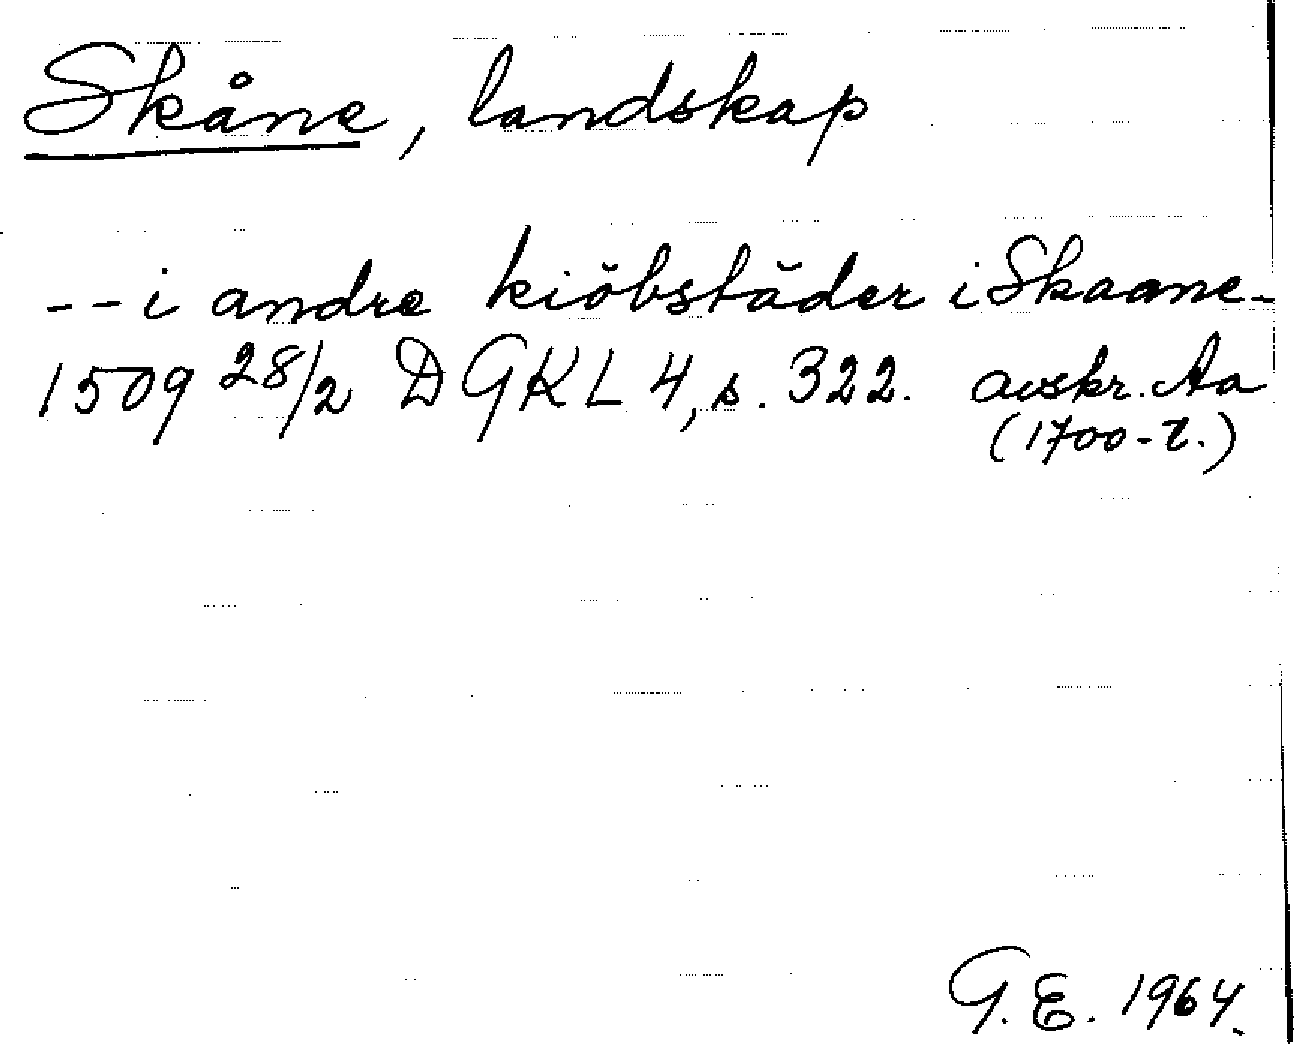 Skåne, landskap
-- i andre kiöbstäder i Skaane -
1509 28/2 DGKL 4, s. 322. avskr. Aa
(1700-t.)
G. E. 1964.